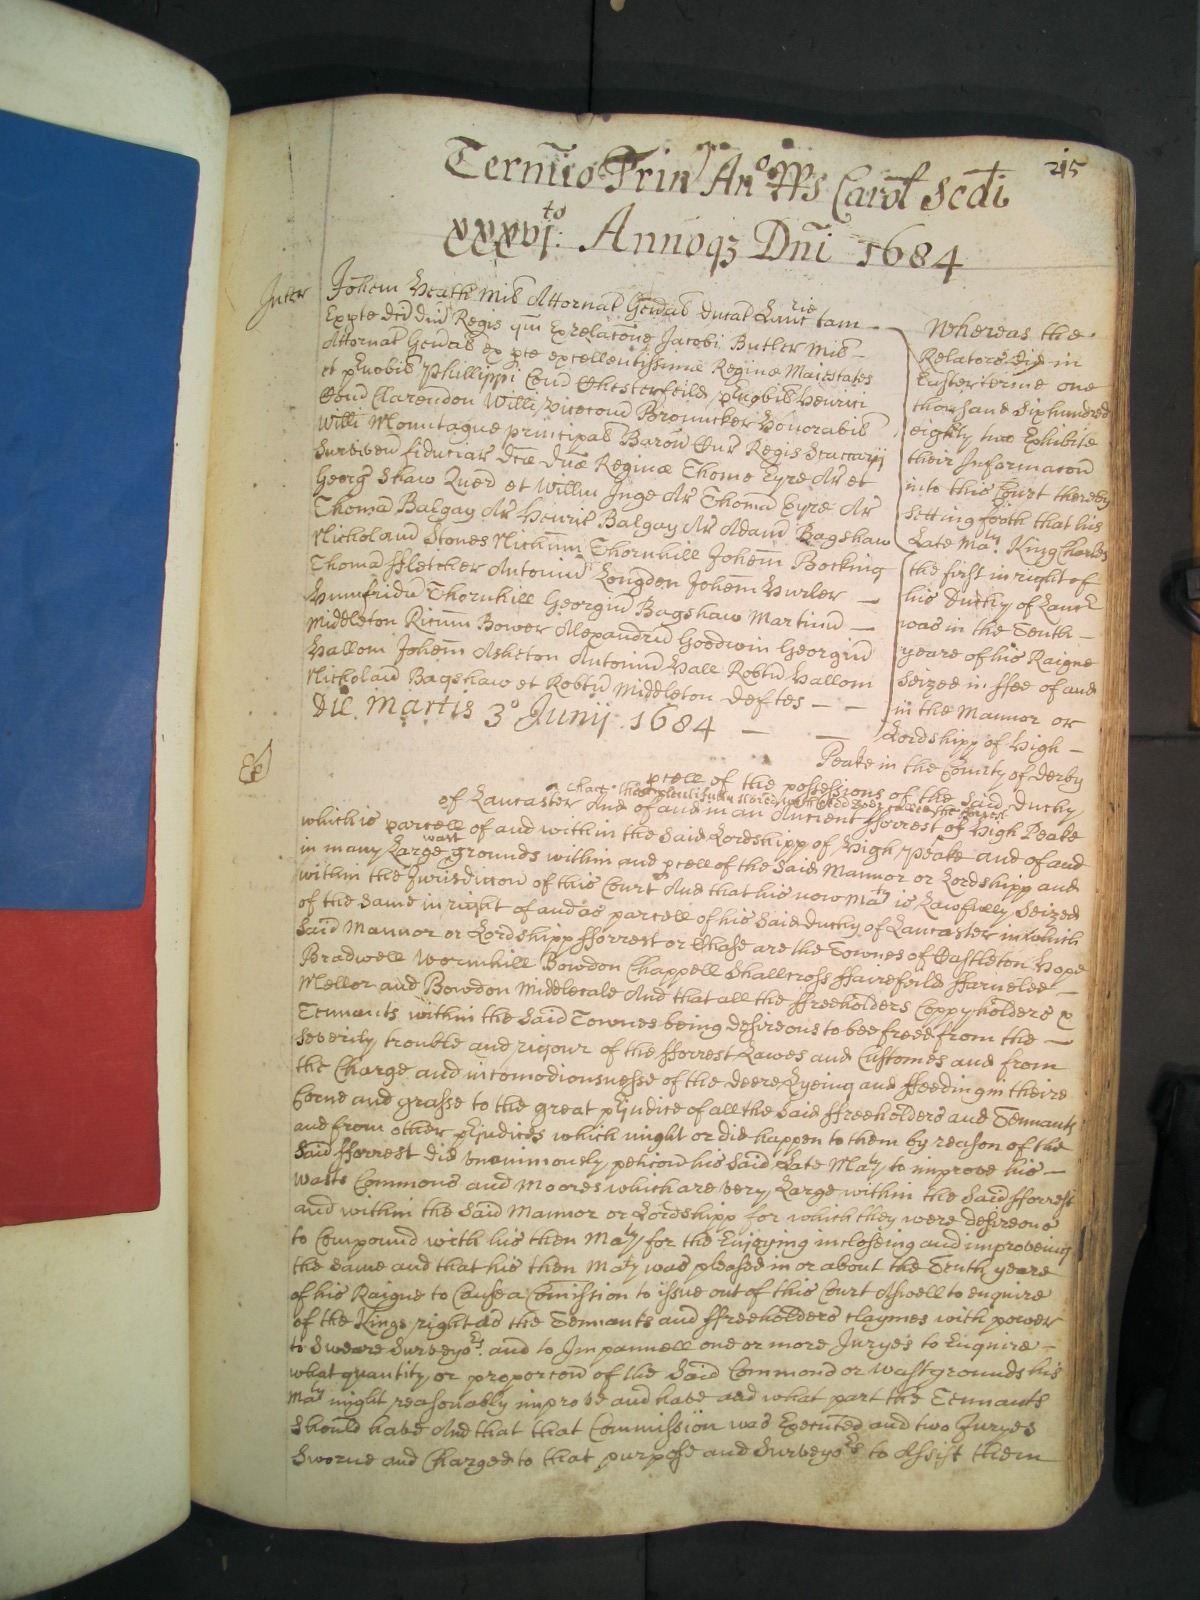 215
Termio Trin An° RRs Carol Scdi
xxxvj:to Annoqz Dni 1684
Inter
Johem Heath Mil Attornat Genal Ducat Lanc rie tam
Expte dci dni Regis qm Exrelacone Jacobi Butler Mil
Attornat Genal ex pte excellentissime Regine Maiestates
et prnobil Phillippi Comd Chesterfeild prnobil Henrici
Comd Clarendon Willi vicecomd Brouncker Honorabil
Willi Mountague principal Baron Cur Regis Scaccarij
Surviven fiduciar dce dne Regine Thome Eyre Ar et
Georg Shaw Quer et Willm Inge Ar Thomā Eyre Ar
Thomā Balgay Ar Henrie Balgay Ar Adamū Bagshaw
Nicholaū Stones Nichum Thornhill Johem Bocking
Thomā ffletcher Antoniu Longdon Johem Hurler —
Humfridu Thornhill Georgiū Bagshaw Martinū —
Middleton Ricum Bower Alexandrū Goodwin Georgiū
Hallom Johem Asheton Antoniū Hall Robtū Hallom
Nicholaū Bagshaw et Robtū Middleton Deftes — —
Die Martis 3° Junij 1684 — —
Whereas the
Relators did in
Easter terme one
thousand Six hundred
eighty two Exhibite
their Informacon
into this Court thereby
Setting forth that his
Late Maty King Charles
the first in right of
his Duchy of Lancr
was in the Tenth —
yeare of his Raigne
Seized in ffee of and
in the Mannor or
Lordshipp of High —
Peake in the County of Derby
pcell of the possessions of the said Duchy
of Lancaster And of and in an Ancient fforrest of High Peake
which is parcell of and within the said Lordshipp of High Peake and of and
in many Large wast grounds within and pcell of the Said Mannor or Lordshipp and
within the Jurisdiccon of this Court And that his now Maty is Lawfully Seized
of the same in right of and as parcell of his said Duchy of Lancaster in which
Said Mannor or Lordshipp fforrest or Chase are the Townes of Castleton Hope
Bradwell Wormhill Bowdon Chappell Shallcross ffairefeild ffarnelee —
Mellor and Bowdon Middlecale And that all the ffreeholders Coppyholders &
Tennants within the said Townes being desireous to bee freed from the —
severity trouble and rigour of the fforrest Lawes and Customes and from
the Charge and incomodiousnesse of the deere Lyeing and ffeeding in theire
Corne and grasse to the great prjudice of all the said ffreeholders and Tennants
and from other prjudices which might or did happen to them by reason of the
Said fforrest did unanimously peticon his said Late Maty to improve his —
wasts Commons and Moores which are very Large within the Said fforrest
and within the Said Mannor or Lordshipp for which they were desireous
to Compound with his then Maty for the Enjoying incloseing and improveing
the same and that his then Maty was pleased in or about the Tenth yeare
of his Raigne to Cause a Comission to issue out of this Court Aswell to enquire
of the Kings right as the Tennants and ffreeholders claymes with power
to Sweare Surveyors and to Impannell one or more Juryes to Enquire —
what quantity or proporcon of the Said Common or wast grounds his
Maty might reasonably improve and have and what part the Tennants
Should have And that that Commission was Executed and two Juryes
Sworne and Charged to that purpose and Surveyors to Assist them